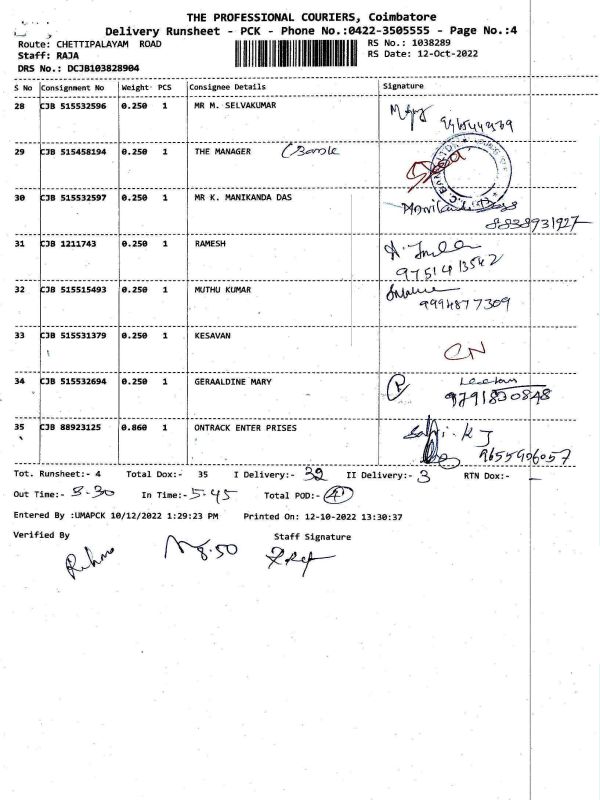 THE PROFESSIONAL COURIERS, Coimbatore
Delivery Runsheet - PCK - Phone No.:0422-3505555 - Page No.:4
Route: CHETTIPALAYAM ROAD RS No.: 1038289
Staff: RAJA RS Date: 12-Oct-2022
DRS No.: DCJB103828904
S No Consignment No Weight PCS Consignee Details Signature
28 CJB 515532596 0.250 1 MR M. SELVAKUMAR
29 CJB 515458194 0.250 1 THE MANAGER
30 CJB 515532597 0.250 1 MR K. MANIKANDA DAS
8838931927
31 CJB 1211743 0.250 1 RAMESH
9751413542
32 CJB 515515493 0.250 1 MUTHU KUMAR
9994877309
33 CJB 515531379 0.250 1 KESAVAN
CN
34 CJB 515532694 0.250 1 GERAALDINE MARY
35 CJB 88923125 0.860 1 ONTRACK ENTER PRISES
9655906057
Tot. Runsheet:- 4 Total Dox:- 35 I Delivery:- 32 II Delivery:- 3 RTN Dox:- -
Out Time:- 3-30 In Time:- 5-45 Total POD:- 4
Entered By :UMAPCK 10/12/2022 1:29:23 PM Printed On: 12-10-2022 13:30:37
Verified By Staff Signature
8.50